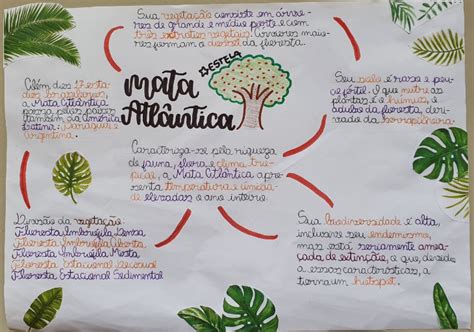 Sua vegetação consiste em árvo-
res de grande e médio porte e com
três extratos vegetais. Árvores mai-
ores formam o dossel da floresta.
ESTELA
Mata
Atlântica
Além dos 17 esta-
dos brasileiros,
a Mata Atlântica
passa pelos países
também da América
Latina: Paraguai e
Argentina.
Seu solo é raso e pou-
co fértil. O que nutre as
plantas é o húmus, e
adubo da floresta, deri-
vado da serrapilheira
Caracteriza-se pela riqueza
de fauna, flora e clima tro-
pical, a Mata Atlântica apre-
senta temperatura e umida-
de elevadas o ano inteiro.
Divisão da vegetação:
Floresta Ombrófila Densa
Floresta Ombrófila Aberta
Floresta Ombrófila Mista
Floresta Estacional Decidual
Floresta Estacional Semidecidual
Sua biodiversidade é alta,
inclusive seu endemismo,
mas está seriamente amea-
çada de extinção, o que, devido
a essas características, a
tornam um hotspot.